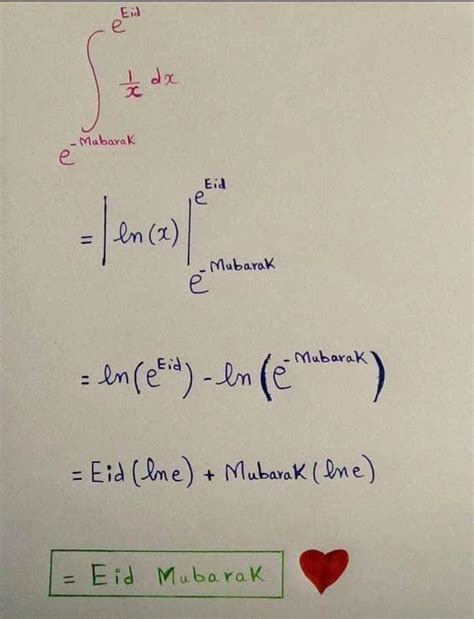 ∫_{e^{-Mubarak}}^{e^{Eid}} 1/x dx
= |ln(x)|_{e^{-Mubarak}}^{e^{Eid}}
= ln(e^{Eid}) - ln(e^{-Mubarak})
= Eid(lne) + Mubarak(lne)
= Eid Mubarak